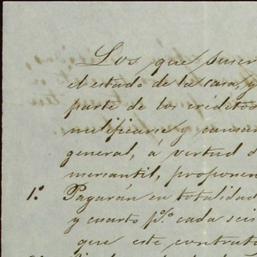 Los que suscri
el estado de la casa, y
parte de los créditos
general, á virtud d
mercantil, proponen
1º. Pagarán en totalidad
y cuarto p% cada seis
que este contrato